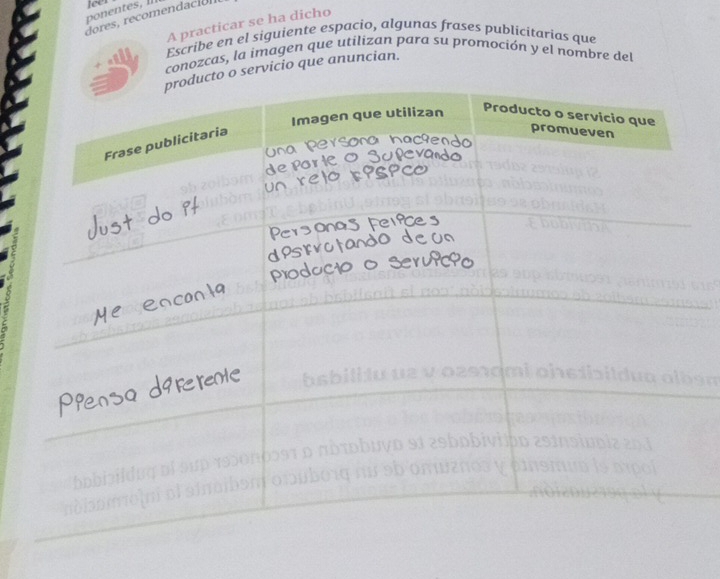 ponentes,
dores, recomendacion
A practicar se ha dicho
Escribe en el siguiente espacio, algunas frases publicitarias que
conozcas, la imagen que utilizan para su promoción y el nombre del
producto o servicio que anuncian.
Frase publicitaria
Imagen que utilizan
Producto o servicio que
promueven
Just do it
una persona haciendo
deporte o superando
un reto fisico
Me encanta
Personas felices
disfrutando de un
producto o servicio
Piensa diferente